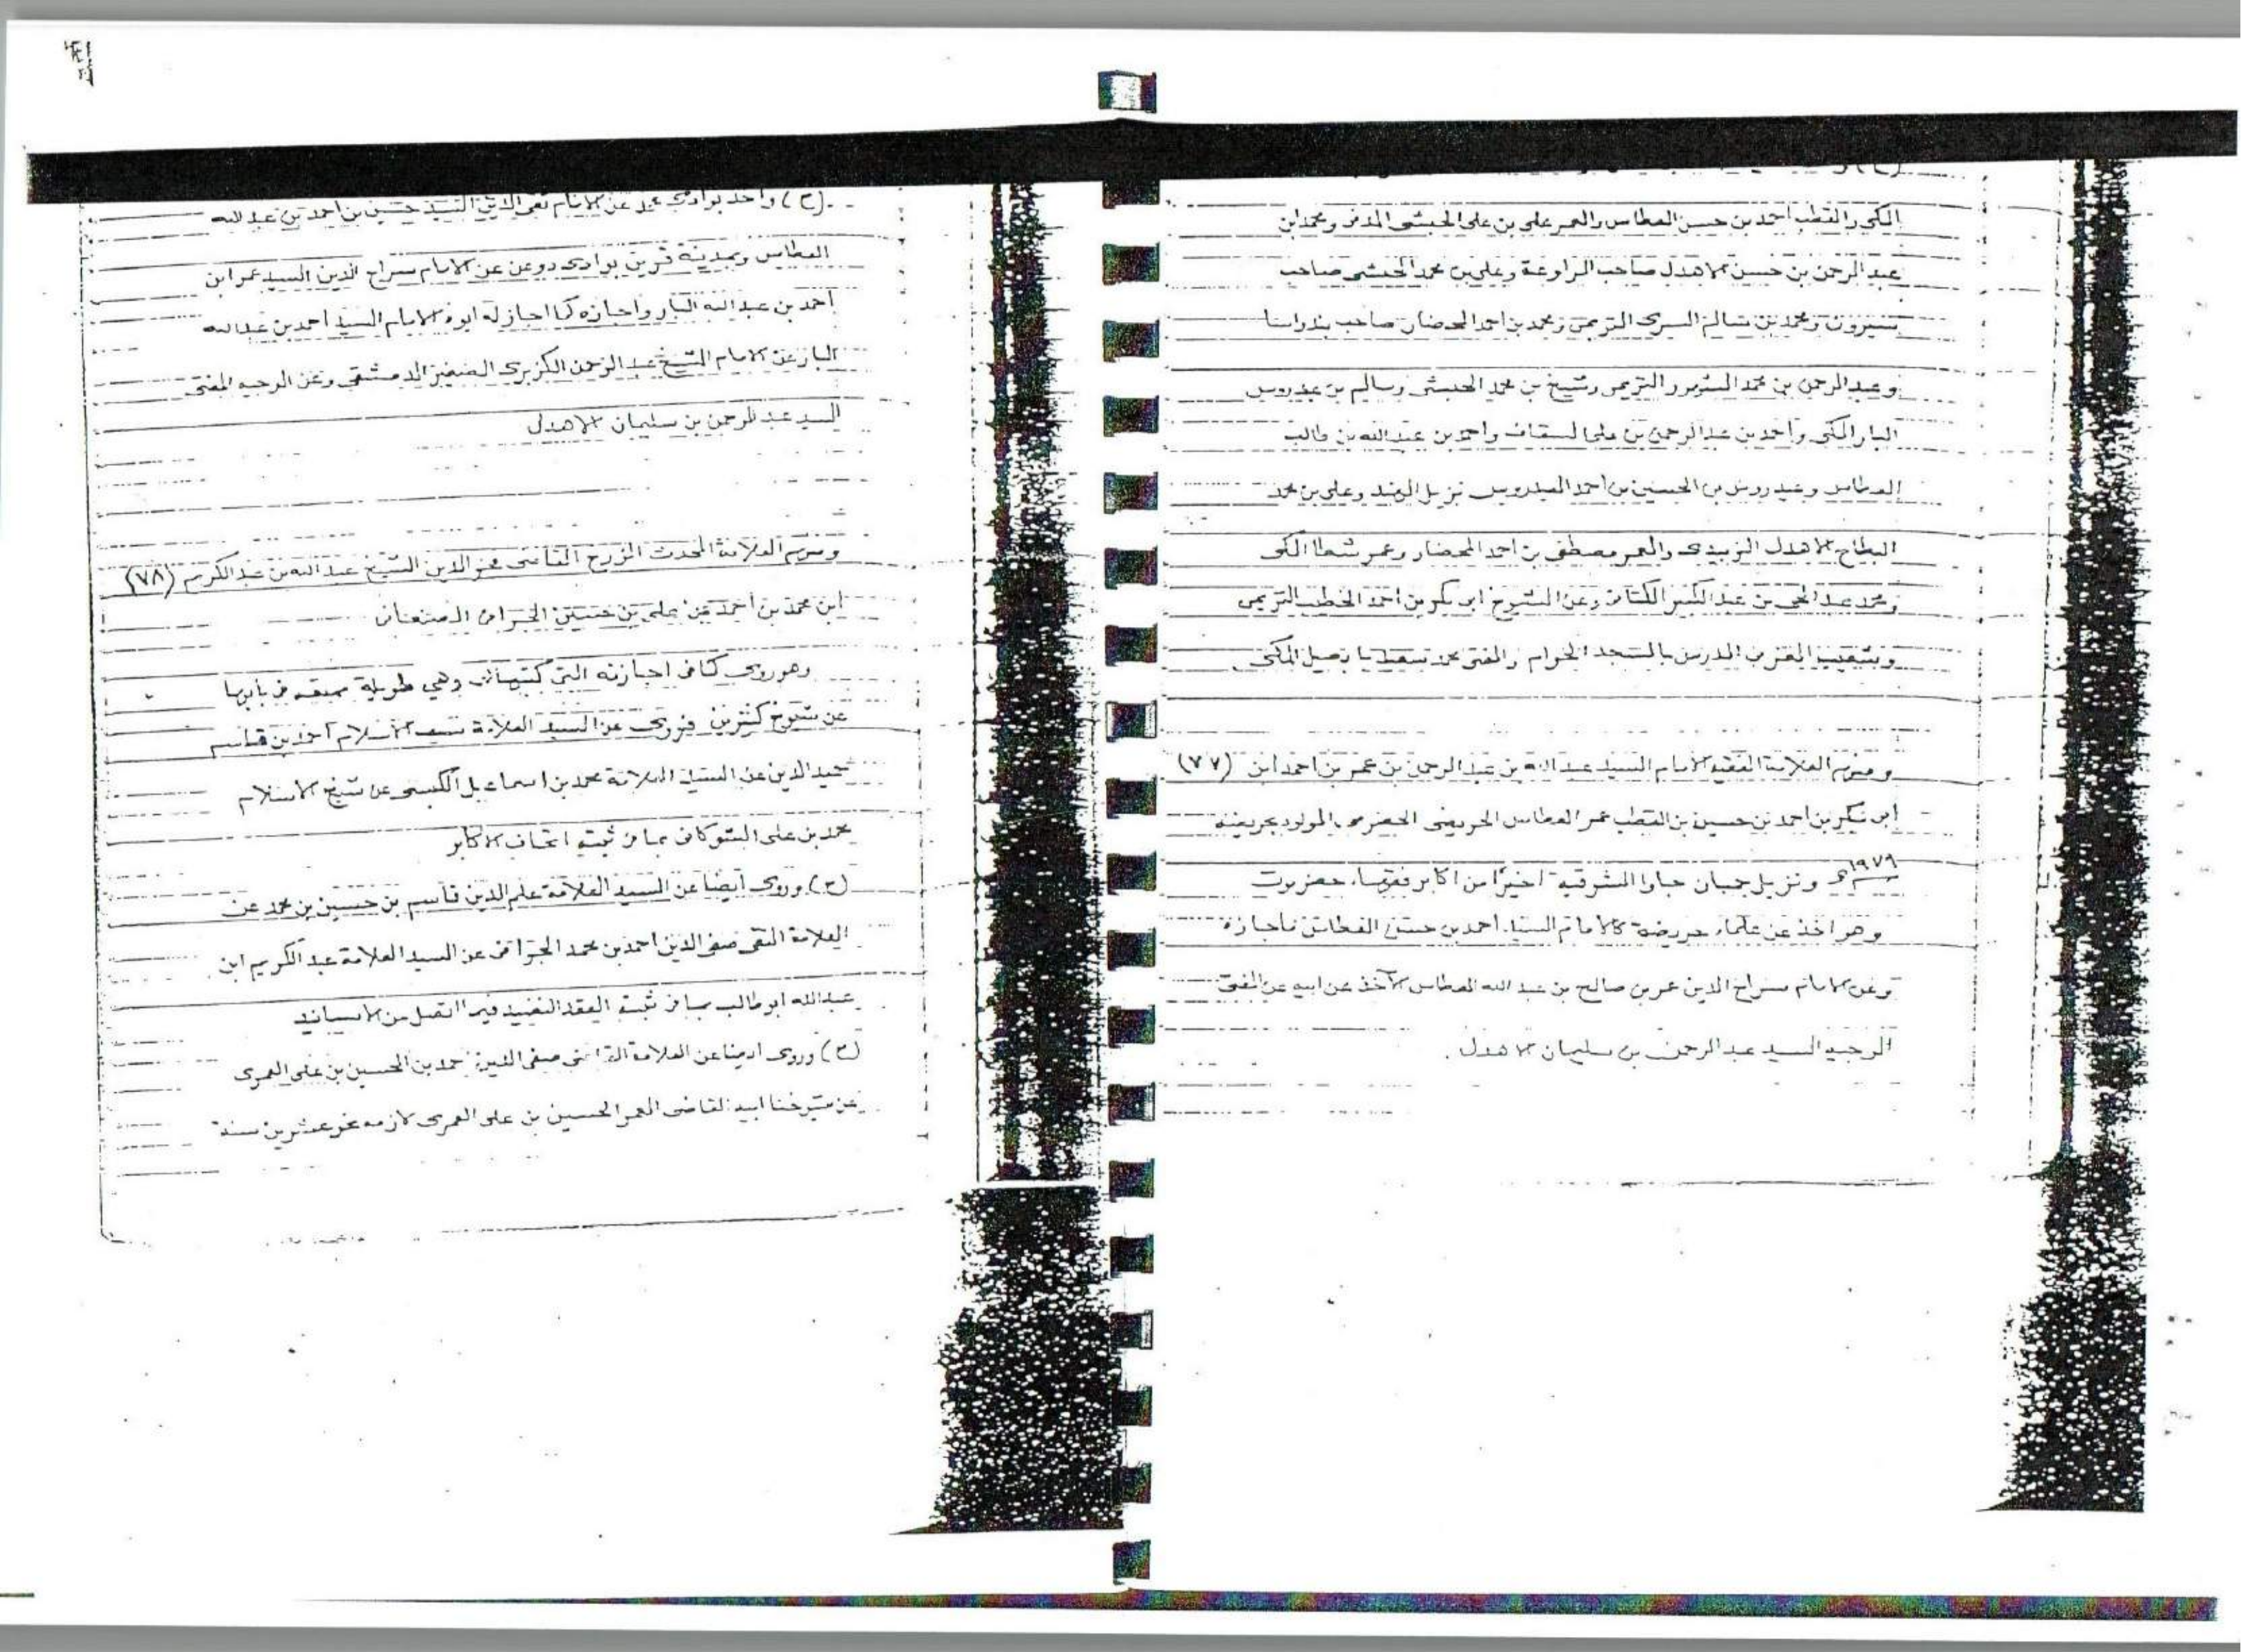 المكي والقطب احمد بن حسن العطاس والعمر علي بن علي الحبشي المدني ومحمد ابن
عبد الرحمن بن حسن الاهدل صاحب المراوعة وعلي بن محمد الحبشي صاحب
سيوون ومحمد بن سالم السري التريمي ومحمد بن احمد المحضار صاحب بندواسا
وعبد الرحمن بن محمد المشهور التريمي وشيخ بن محمد الحبشي وسالم بن عيدروس
البار المكي واحمد بن عبد الرحمن بن علي السقاف واحمد بن عبد الله بن طالب
العطاس وعيدروس بن الحسين بن احمد العيدروس نزيل الهند وعلي بن محمد
البطاح الاهدل الزبيدي والعمر مصطفى بن احمد المحضار وعمر شطا المكي
ومحمد عبد الحي بن عبد الكبير الكتاني وعن الشيوخ ابي بكر بن احمد الخطيب التريمي
وشعيب المغربي المدرس بالمسجد الحرام والمفتي محمد سعيد بابصيل المكي
ومنهم العلامة الفقيه الامام السيد عبد الله بن عبد الرحمن بن عمر بن احمد ابن (٧٧)
ابي بكر بن احمد بن حسين بن القطب عمر العطاس الحريضي الحضرمي المولود بحريضة
ونزيل جاوا الشرقية اخيرا من اكابر فقهاء حضرموت
وهو اخذ عن علماء حريضة كالامام السيد احمد بن حسن العطاس فاجازه
وعن الامام سراج الدين عمر بن صالح بن عبد الله العطاس الآخذ عن ابيه عن المفتي
الوجيه السيد عبد الرحمن بن سليمان الاهدل .
(ح) واخذ بوادي عمد عن الامام تقي الدين السيد حسين بن احمد بن عبد الله
العطاس وبمدينة قرين بوادي دوعن عن الامام سراج الدين السيد عمر ابن
احمد بن عبد الله البار واجازه كما اجاز له ابوه الامام السيد احمد بن عبد الله
البار عن الامام الشيخ عبد الرحمن الكزبري الصغير الدمشقي وعن الوجيه المفتي
السيد عبد الرحمن بن سليمان الاهدل
ومنهم العلامة المحدث المؤرخ القاضي فخر الدين الشيخ عبد الله بن عبد الكريم (٧٨)
ابن محمد بن احمد بن علي بن حسين الجرافي الصنعاني
وهو روى كما في اجازته التي كتبها لي وهي طويلة في بابها
عن شيوخ كثيرين فروى عن السيد العلامة سيف الاسلام احمد بن قاسم
حميد الدين عن السيد العلامة محمد بن اسماعيل الكبسي عن شيخ الاسلام
محمد بن علي الشوكاني بما في ثبته اتحاف الاكابر
(ح) وروى ايضا عن السيد العلامة علم الدين قاسم بن حسين بن محمد عن
العلامة التقي صفي الدين احمد بن محمد الجرافي عن السيد العلامة عبد الكريم ابن
عبد الله ابو طالب بما في ثبته العقد النضيد فيما اتصل من الاسانيد
(ح) وروى ايضا عن العلامة القاضي صفي الدين احمد بن الحسين بن علي العمري
عن شيخنا ابيه القاضي العمر الحسين بن علي العمري لازمه نحو عشرين سنة